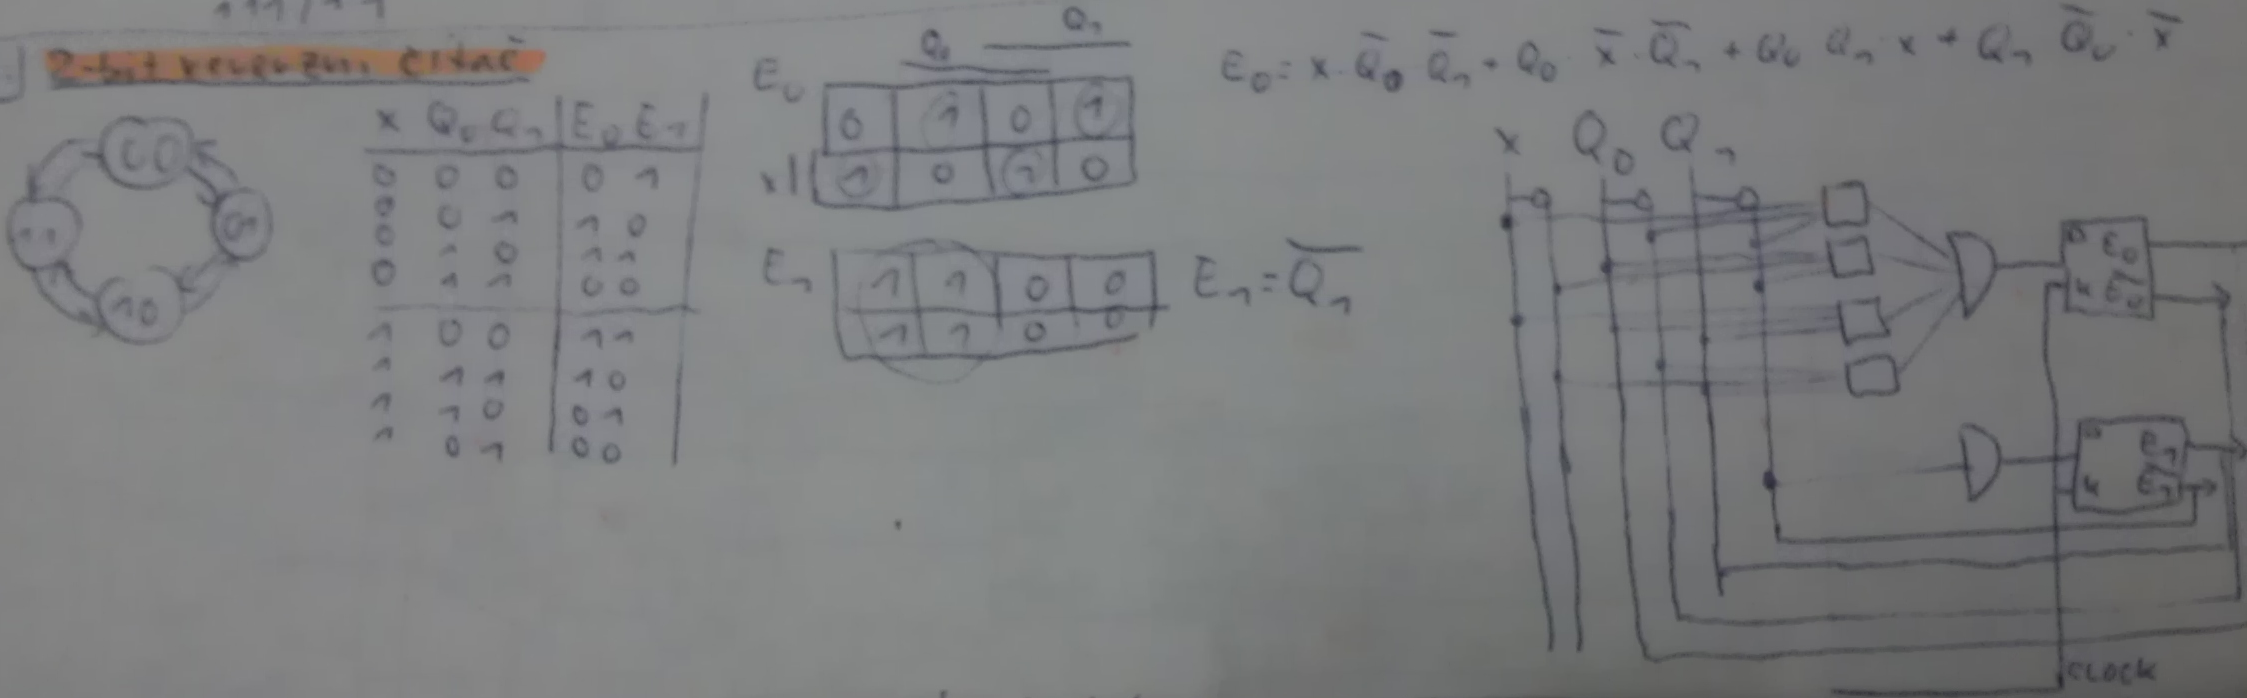 2-bit reverzní čítač
00
11
01
10
x Q₀ Q₁ E₀ E₁
0 0 0 0 1
0 0 1 1 0
0 1 0 1 1
0 1 1 0 0
1 0 0 1 1
1 1 1 1 0
1 1 0 0 1
1 0 1 0 0
Q₀ Q₁
E₀
0 1 0 1
x 1 0 1 0
E₁
1 1 0 0
1 1 0 0
E₁ = Q̅₁
E₀ = x · Q̅₀ Q̅₁ + Q₀ · x̅ · Q̅₁ + Q₀ Q₁ · x + Q₁ Q̅₀ · x̅
x Q₀ Q₁
D E₀
K E̅₀
D E₁
K E̅₁
CLOCK